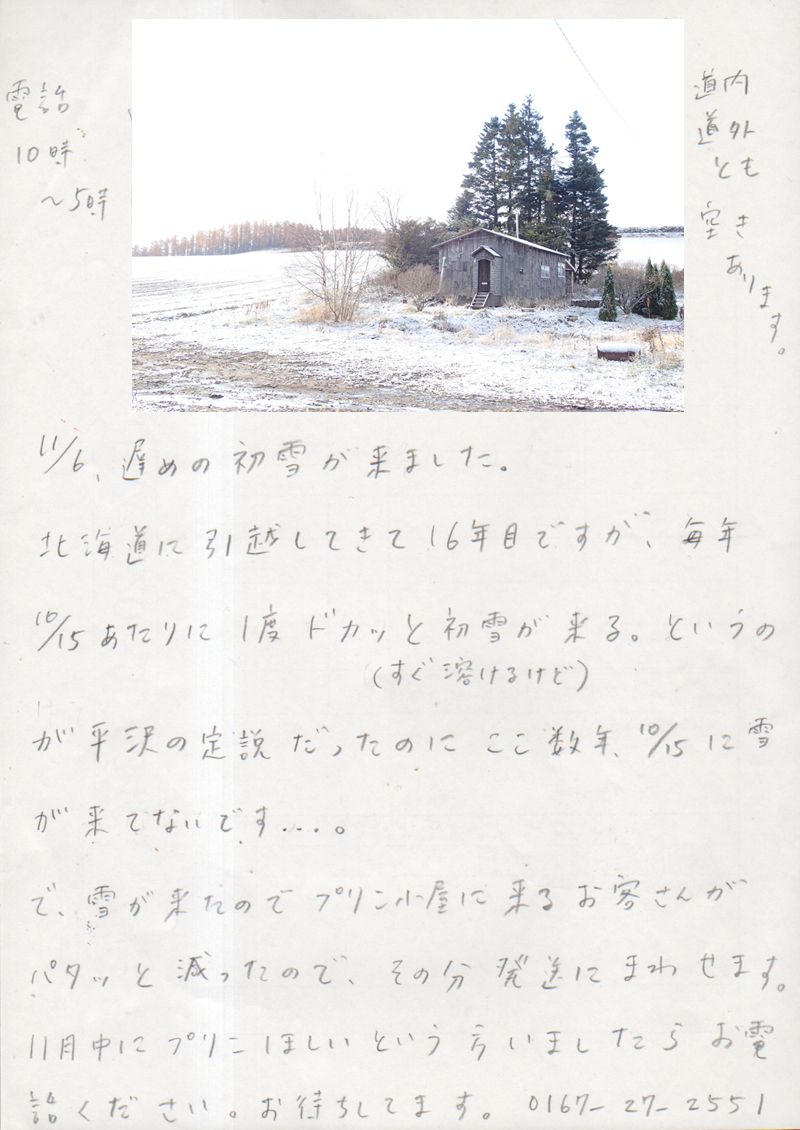 電話
10時
〜5時
道内
道外
とも
空き
あります。
11/6、遅めの初雪が来ました。
北海道に引越してきて16年目ですが、毎年
10/15あたりに1度ドカッと初雪が来る。というの
(すぐ溶けるけど)
が平沢の定説だったのにここ数年、10/15に雪
が来てないです....。
で、雪が来たのでプリン小屋に来るお客さんが
パタッと減ったので、その分発送にまわせます。
11月中にプリンほしいという方いましたらお電
話ください。お待ちしてます。0167-27-2551